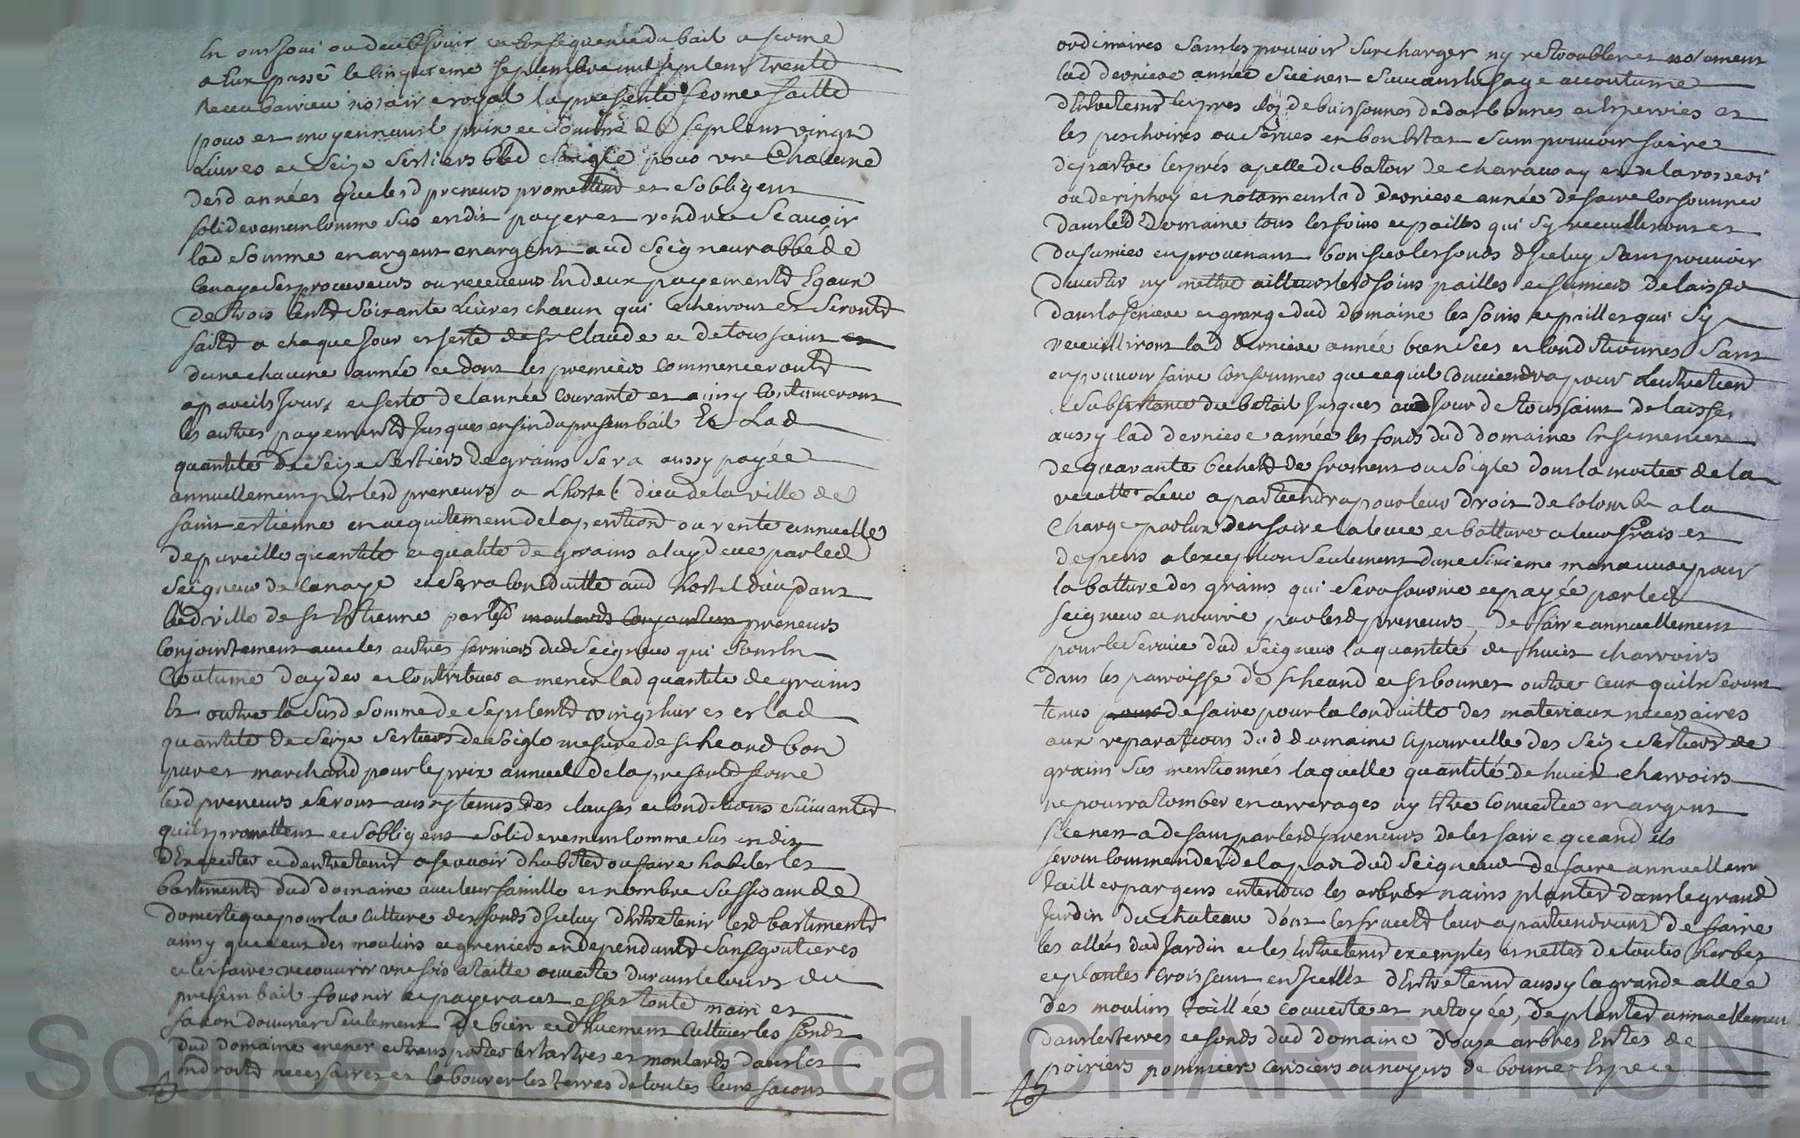 En ont joui ou deub jouir en consequence du bail a ferme
a Eux passé le cinquieme septembre mil sept cent trente
Receu notaire royal la presente ferme faitte
pour et moyennant prix et somme de sept cent vingt
Livres et seize sestiers bled seigle pour une chacune
desd années que lesd preneurs promettent et sobligent
soliderement comme sus est dit payer et rendre scavoir
lad somme en argent en argent aud seigneur abbé de
ses procureurs ou receveurs En deux payements Egaux
de trois cents soixante Livres chacun qui echeiront et seront
faits a chaque jour et feste de st Claude et de toussaint
dune chacune année et dont les premiers commenceront
a pareils jours et feste de lannée courante et ainsy continueront
les autres payements jusques en fin du present bail Et Lad
quantité de seize sestiers de grains sera aussy payée
annuellement par lesd preneurs a Lhostel dieu de la ville de
saint estienne en acquitement de la pention ou rente annuelle
de pareille quantité et qualité de grains a luy deue par led
seigneur de et sera conduitte aud hostel dieu dans
lad ville de st Estienne par lesd preneurs
conjointement avec les autres fermiers dud seigneur qui sont en
Coutume dayder et contribuer a mener lad quantité de grains
Et outre la susd somme de sept cents vingt livres et lad
quantité de seize sestiers de seigle mesure de st heand bon
pur et marchand pour le prix annuel de la presente ferme
lesd preneurs seront aussy tenus des clauses et conditions suivantes
quils promettent et sobligent soliderement comme sus est dit
dExecuter et dentretenir a scavoir dhabiter ou faire habiter les
bastiments dud domaine avec leur famille et nombre suffisant de
domestique pour la culture des fonds dIceluy dEntretenir lesd bastiments
ainsy que ceux des moulins et greniers en dependants sans goutieres
et les faire recouvrir une fois a taille ouverte durant le cours du
present bail fournir et payer a cet effet toute main et
facon de bien et duement cultiver les fonds
dud domaine mener et transporter les terres et dans les
Endroits necessaires et labourer les terres de toutes leurs facons
ordinaires sans les pouvoir surcharger ny retroubler et notament
lad derniere année suivant sage acoutumé
dEntretenir les prés de buissonnes et Espervies et
les peschoires ou serves en bon Estat sans pouvoir faire
les prés apellé du batoir de et de la
ou et notament lad derniere année de faire consommer
dans led Domaine tous les foins et pailles qui sy recueilleront et
du fumier en provenant bonifier les fonds dIceluy sans pouvoir
divertir ny mettre ailleurs lesd foins pailles et fumiers de laisser
dans la feniere et grange dud domaine les foins et pailles qui sy
recueilliront lad derniere année bien secs et conditionnés sans
en pouvoir faire consommer que ce quil conviendra pour Lentretien
et subsistance du betail jusques aud jour de toussaint de laisser
aussy lad derniere année les fonds dud domaine Ensemencés
de quarante bichets de froment ou seigle dont la moitié de la
recolte Leur apartiendra pour leur droit de colon a la
charge par Eux den faire la levée et batture a leur frais et
depens a lexception seulement dune manœuvre pour
la batture des grains qui sera fournie et payée par led
seigneur et nourrie par lesd preneurs de faire annuellement
pour le service dud seigneur la quantité de huit charroirs
dans les parroisse de st heand et st bonnet outre ceux quils seront
tenus de faire pour la conduitte des materiaux necessaires
aux reparations dud domaine et pour celle des seize sestiers de
grains sus mentionnés laquelle quantité de huit charroirs
ne pourra tomber en arrerages ny Estre convertie en argent
par lesd preneurs de les faire quand ils
seront commendés de la part dud seigneur de faire annuellement
tailler par gens entendus les arbres nains plantés dans le grand
Jardin du chateau dont les fruits leur apartiendront de faire
les allées dud jardin et les Entretenir exemptes et nettes de toutes herbes
et plantes croissant en Icelles dEntretenir aussy la grande allée
des moulins taillée couverte et netoyée, de planter annuellement
dans les terres et fonds dud domaine douze arbres Entés de
poiriers pommiers cerisiers ou noyers de bonne Espece
Source AD Pascal CHAREYRON